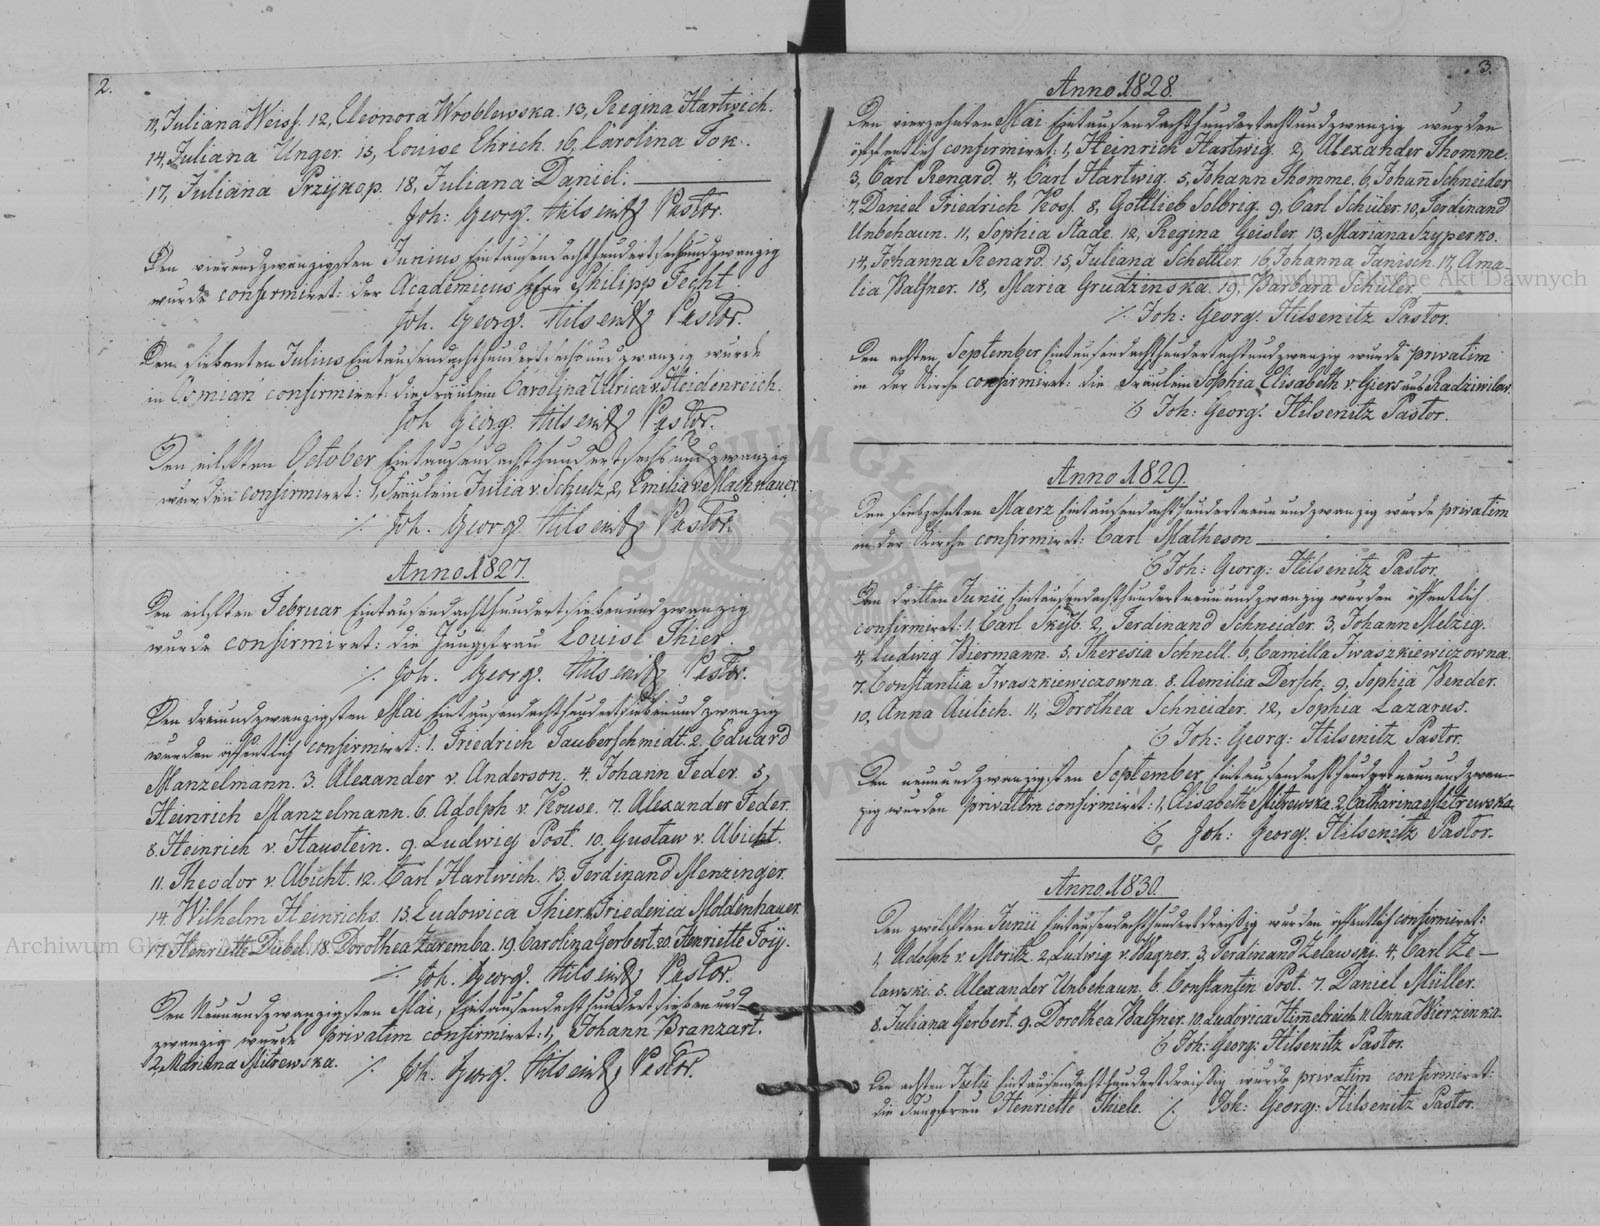 2.
11, Juliana Weiss. 12, Eleonora Wroblewska. 13, Regina Hartwich.
14. Juliana Unger. 15, Louise Ehrich. 16, Carolina Tok.
17, Juliana Przykop. 18, Juliana Daniel.
Joh: Georg. Hilsenitz Pastor.
Den vierundzwanzigsten Junius Eintausendachthundertsechsundzwanzig
wurde confirmiret: der Academicus Herr Philipp Fecht.
Joh. Georg. Hilsenitz Pastor.
Den siebenten Julius Eintausendachthundertsechsundzwanzig wurde
in Osmian confirmiret: die Fräulein Carolina Ulrica v. Heidenreich.
Joh Georg. Hilsenitz Pastor.
Den eilften October Eintausendachthundertsechsundzwanzig
wurden confirmiret: 1, Fräulein Julia v. Schulz, 2, Emilia v. Machnauer
Joh. Georg. Hilsenitz Pastor.
Anno 1827.
Den eilften Februar Eintausendachthundertsiebenundzwanzig
wurde confirmiret: die Jungfrau Louise Thier.
Joh. Georg. Hilsenitz Pastor.
Den dreiundzwanzigsten Mai Eintausendachthundertsiebenundzwanzig
wurden öffentlich confirmiret: 1. Friedrich Tauberschmidt. 2. Eduard
Manzelmann. 3. Alexander v. Anderson. 4. Johann Feder. 5,
Heinrich Manzelmann. 6. Adolph v. Kruse. 7. Alexander Feder.
8. Heinrich v. Haustein. 9. Ludwig Post. 10. Gustaw v. Abicht.
11. Theodor v. Abicht. 12. Carl Hartwich. 13. Ferdinand Menzinger
14. Wilhelm Heinrichs. 15. Ludowica Thier. Friederica Moldenhauer.
17. Henriette Dubel. 18. Dorothea Zaremba. 19. Carolina Gerbert. 20. Henriette Foij.
Joh. Georg. Hilsenitz Pastor.
Den Neunundzwanzigsten Mai, Eintausendachthundertsiebenund-
zwanzig wurde privatim confirmiret: 1, Johann Branzart.
2, Mariana Mitrewska. Joh. Georg. Hilsenitz Pastor.
3.
Anno 1828.
Den vierzehnten Mai Eintausendachthundertachtundzwanzig wurden
öffentlich confirmiret: 1, Heinrich Hartwig. 2, Alexander Thomme.
3, Carl Renard. 4, Carl Hartwig. 5, Johann Thomme. 6, Johan̄ Schneider
7, Daniel Friedrich Koss. 8, Gottlieb Solbrig. 9, Carl Schüler. 10, Ferdinand
Unbehaun. 11, Sophia Stade. 12, Regina Geisler. 13, Mariana Szyperko.
14, Johanna Renard. 15, Juliana Schettler. 16, Johanna Janisch. 17, Ama-
lia Balsner. 18, Maria Grudzinska. 19, Barbara Schüler.
Joh: Georg. Hilsenitz Pastor.
Den achten September Eintausendachthundertachtundzwanzig wurde privatim
in der Kirche confirmiret: die Fräulein Sophia Elisabeth v. Giers aus Radziwilow.
Joh: Georg. Hilsenitz Pastor.
Anno 1829.
Den siebzehnten Maerz Eintausendachthundertneunundzwanzig wurde privatim
in der Kirche confirmiret: Carl Matheson
Joh: Georg: Hilsenitz Pastor.
Den dritten Junii Eintausendachthundertneunundzwanzig wurden öffentlich
confirmiret: 1. Carl 2, Ferdinand Schneider. 3, Johann Melzig.
4, Ludwig Biermann. 5, Theresia Schnell. 6, Camella Iwaszkiewiczowna.
7. Constantia Iwaszkiewiczowna. 8. Aemilia Dersch. 9, Sophia Bender.
10, Anna Aulich. 11, Dorothea Schneider. 12, Sophia Lazarus.
Joh: Georg: Hilsenitz Pastor.
Den neunundzwanzigsten September Eintausendachthundertneunundzwan-
zig wurden privatim confirmiret: 1, Elisabeth Mitrewska. 2, Catharina Mitrewska.
Joh: Georg. Hilsenitz Pastor.
Anno 1830.
Den zwölften Junii Eintausendachthundertdreißig wurden öffentlich confirmiret:
1, Adolph v. Moritz. 2, Ludwig v. Wagner. 3, Ferdinand Zelawski. 4. Carl Ze-
lawski. 5. Alexander Unbehaun. 6. Constantin Post. 7. Daniel Müller.
8. Juliana Gerbert. 9. Dorothea Balsner. 10. Ludovica Him̄elreich. 11. Anna Wierzinka.
Joh: Georg: Hilsenitz Pastor.
Den achten Julii Eintausendachthundertdreißig wurde privatim confirmiret:
die Jungfrau Henriette Thiele. Joh: Georg: Hilsenitz Pastor.
Archiwum Główne Akt Dawnych
Archiwum